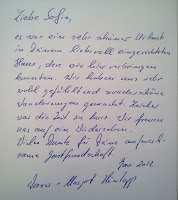 Liebe Sofia,
es war ein sehr schöner Urlaub
in Deinem liebevoll eingerichteten
Haus, den wir hier verbringen
konnten. Wir haben uns sehr
wohl gefühlt und wunderschöne
Wanderungen gemacht. Leider
war die Zeit zu kurz. Wir freuen
uns auf ein Wiedersehen.
Vielen Dank für Deine aufmerk-
same Gastfreundschaft
2012
Margot